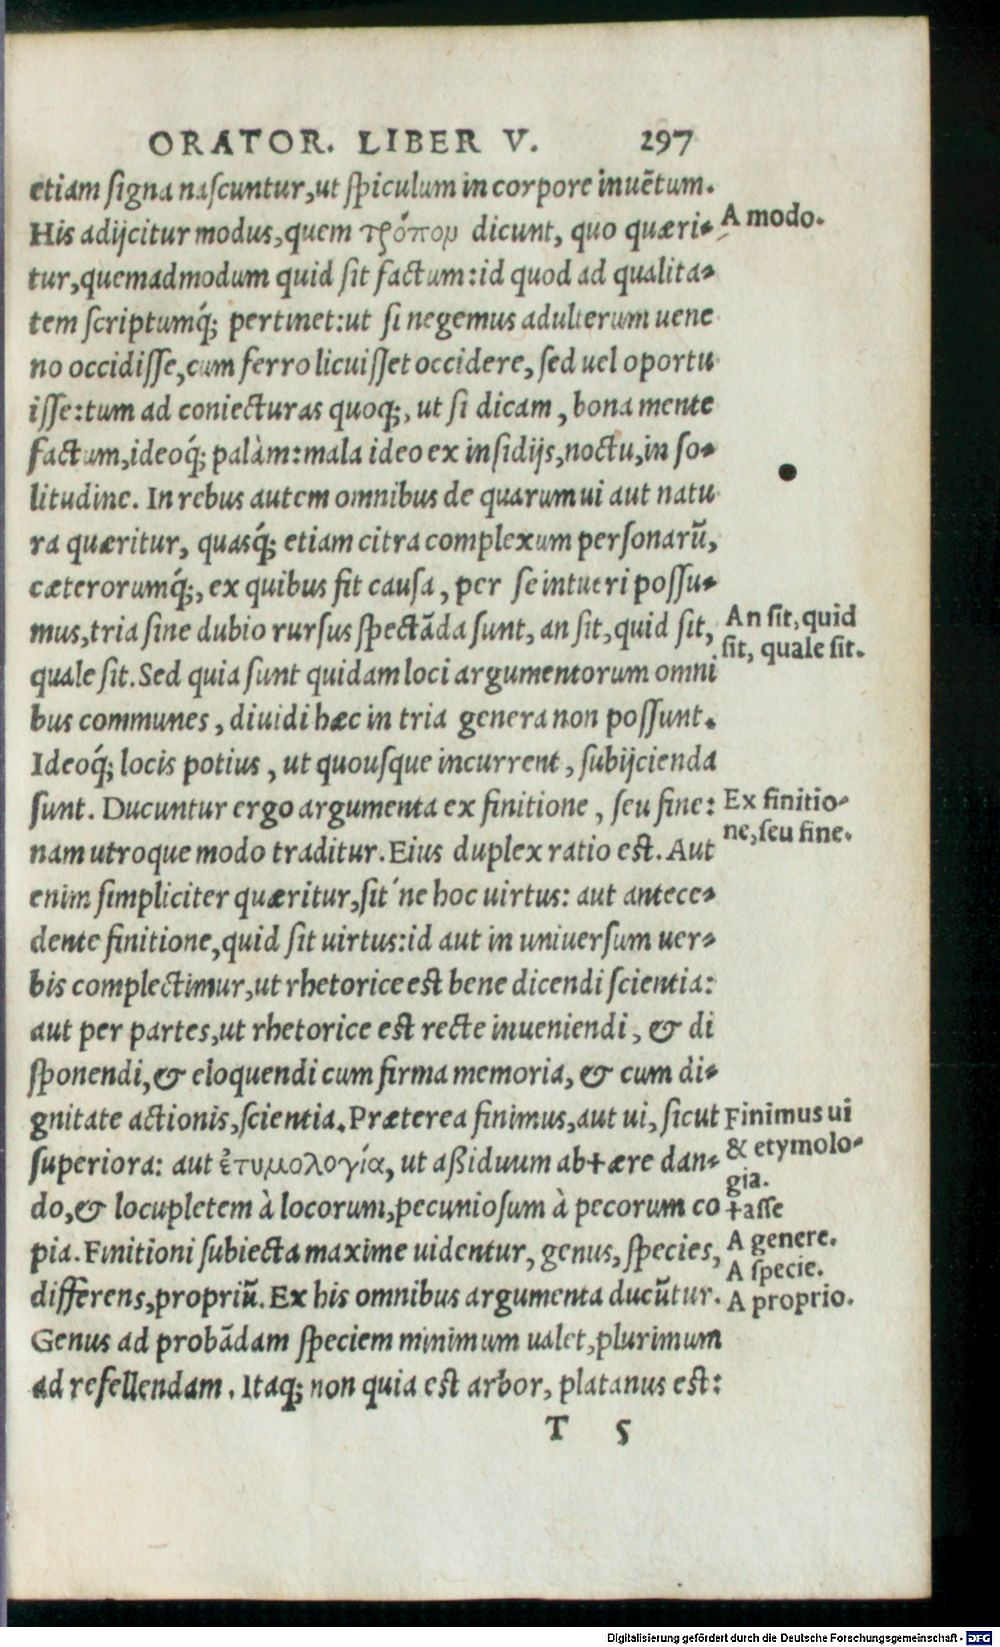 ORATOR. LIBER V. 297
etiam signa nascuntur, ut spiculum in corpore inuētum.
His adijcitur modus, quem τρόπομ dicunt, quo quæri-
A modo.
tur, quemadmodum quid sit factum: id quod ad qualita-
tem scriptumq́; pertinet: ut si negemus adulterum uene
no occidisse, cum ferro licuisset occidere, sed uel oportu
isse: tum ad coniecturas quoq;, ut si dicam, bona mente
factum, ideoq́; palàm: mala ideo ex insidijs, noctu, in so-
litudine. In rebus autem omnibus de quarum ui aut natu
ra quæritur, quasq́; etiam citra complexum personarū,
cæterorumq́;, ex quibus fit causa, per se intueri possu-
mus, tria sine dubio rursus spectāda sunt, an sit, quid sit,
An sit, quid
sit, quale sit.
quale sit. Sed quia sunt quidam loci argumentorum omni
bus communes, diuidi hæc in tria genera non possunt.
Ideoq́; locis potius, ut quousque incurrent, subijcienda
sunt. Ducuntur ergo argumenta ex finitione, seu fine:
Ex finitio-
ne, seu fine.
nam utroque modo traditur. Eius duplex ratio est. Aut
enim simpliciter quæritur, sit´ne hoc uirtus: aut antece-
dente finitione, quid sit uirtus: id aut in uniuersum uer-
bis complectimur, ut rhetorice est bene dicendi scientia:
aut per partes, ut rhetorice est recte inueniendi, & di
sponendi, & eloquendi cum firma memoria, & cum di-
gnitate actionis, scientia. Præterea finimus, aut ui, sicut
Finimus ui
& etymolo-
gia.
superiora: aut ἐτυμολογία, ut aßiduum ab + ære dan-
do, & locupletem à locorum, pecuniosum à pecorum co
+ asse
pia. Finitioni subiecta maxime uidentur, genus, species,
A genere.
A specie.
differens, propriū. Ex his omnibus argumenta ducūtur.
A proprio.
Genus ad probādam speciem minimum ualet, plurimum
ad refellendam. Itaq; non quia est arbor, platanus est:
T 5
Digitalisierung gefördert durch die Deutsche Forschungsgemeinschaft - DFG